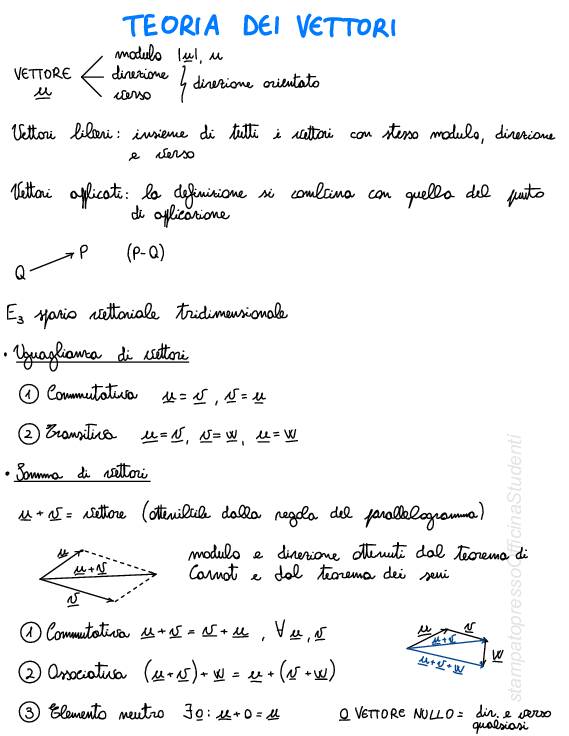 TEORIA DEI VETTORI
modulo |u|, u
VETTORE direzione } direzione orientato
u verso
Vettori liberi: insieme di tutti i vettori con stesso modulo, direzione
e verso
Vettori applicati: la definizione si combina con quella del punto
di applicazione
Q P (P-Q)
E₃ spazio vettoriale tridimensionale
• Uguaglianza di vettori
① Commutativa u = v , v = u
② Transitiva u = v, v = w, u = w
• Somma di vettori
u + v = vettore (ottenibile dalla regola del parallelogramma)
u
u+v
v
modulo e direzione ottenuti dal teorema di
Carnot e dal teorema dei seni
① Commutativa u + v = v + u , ∀ u, v
② Associativa (u + v) + w = u + (v + w)
u v
u+v
w
u+v+w
③ Elemento neutro ∃ 0: u + 0 = u 0 VETTORE NULLO = dir. e verso
qualsiasi
stampatopressoOfficinaStudenti